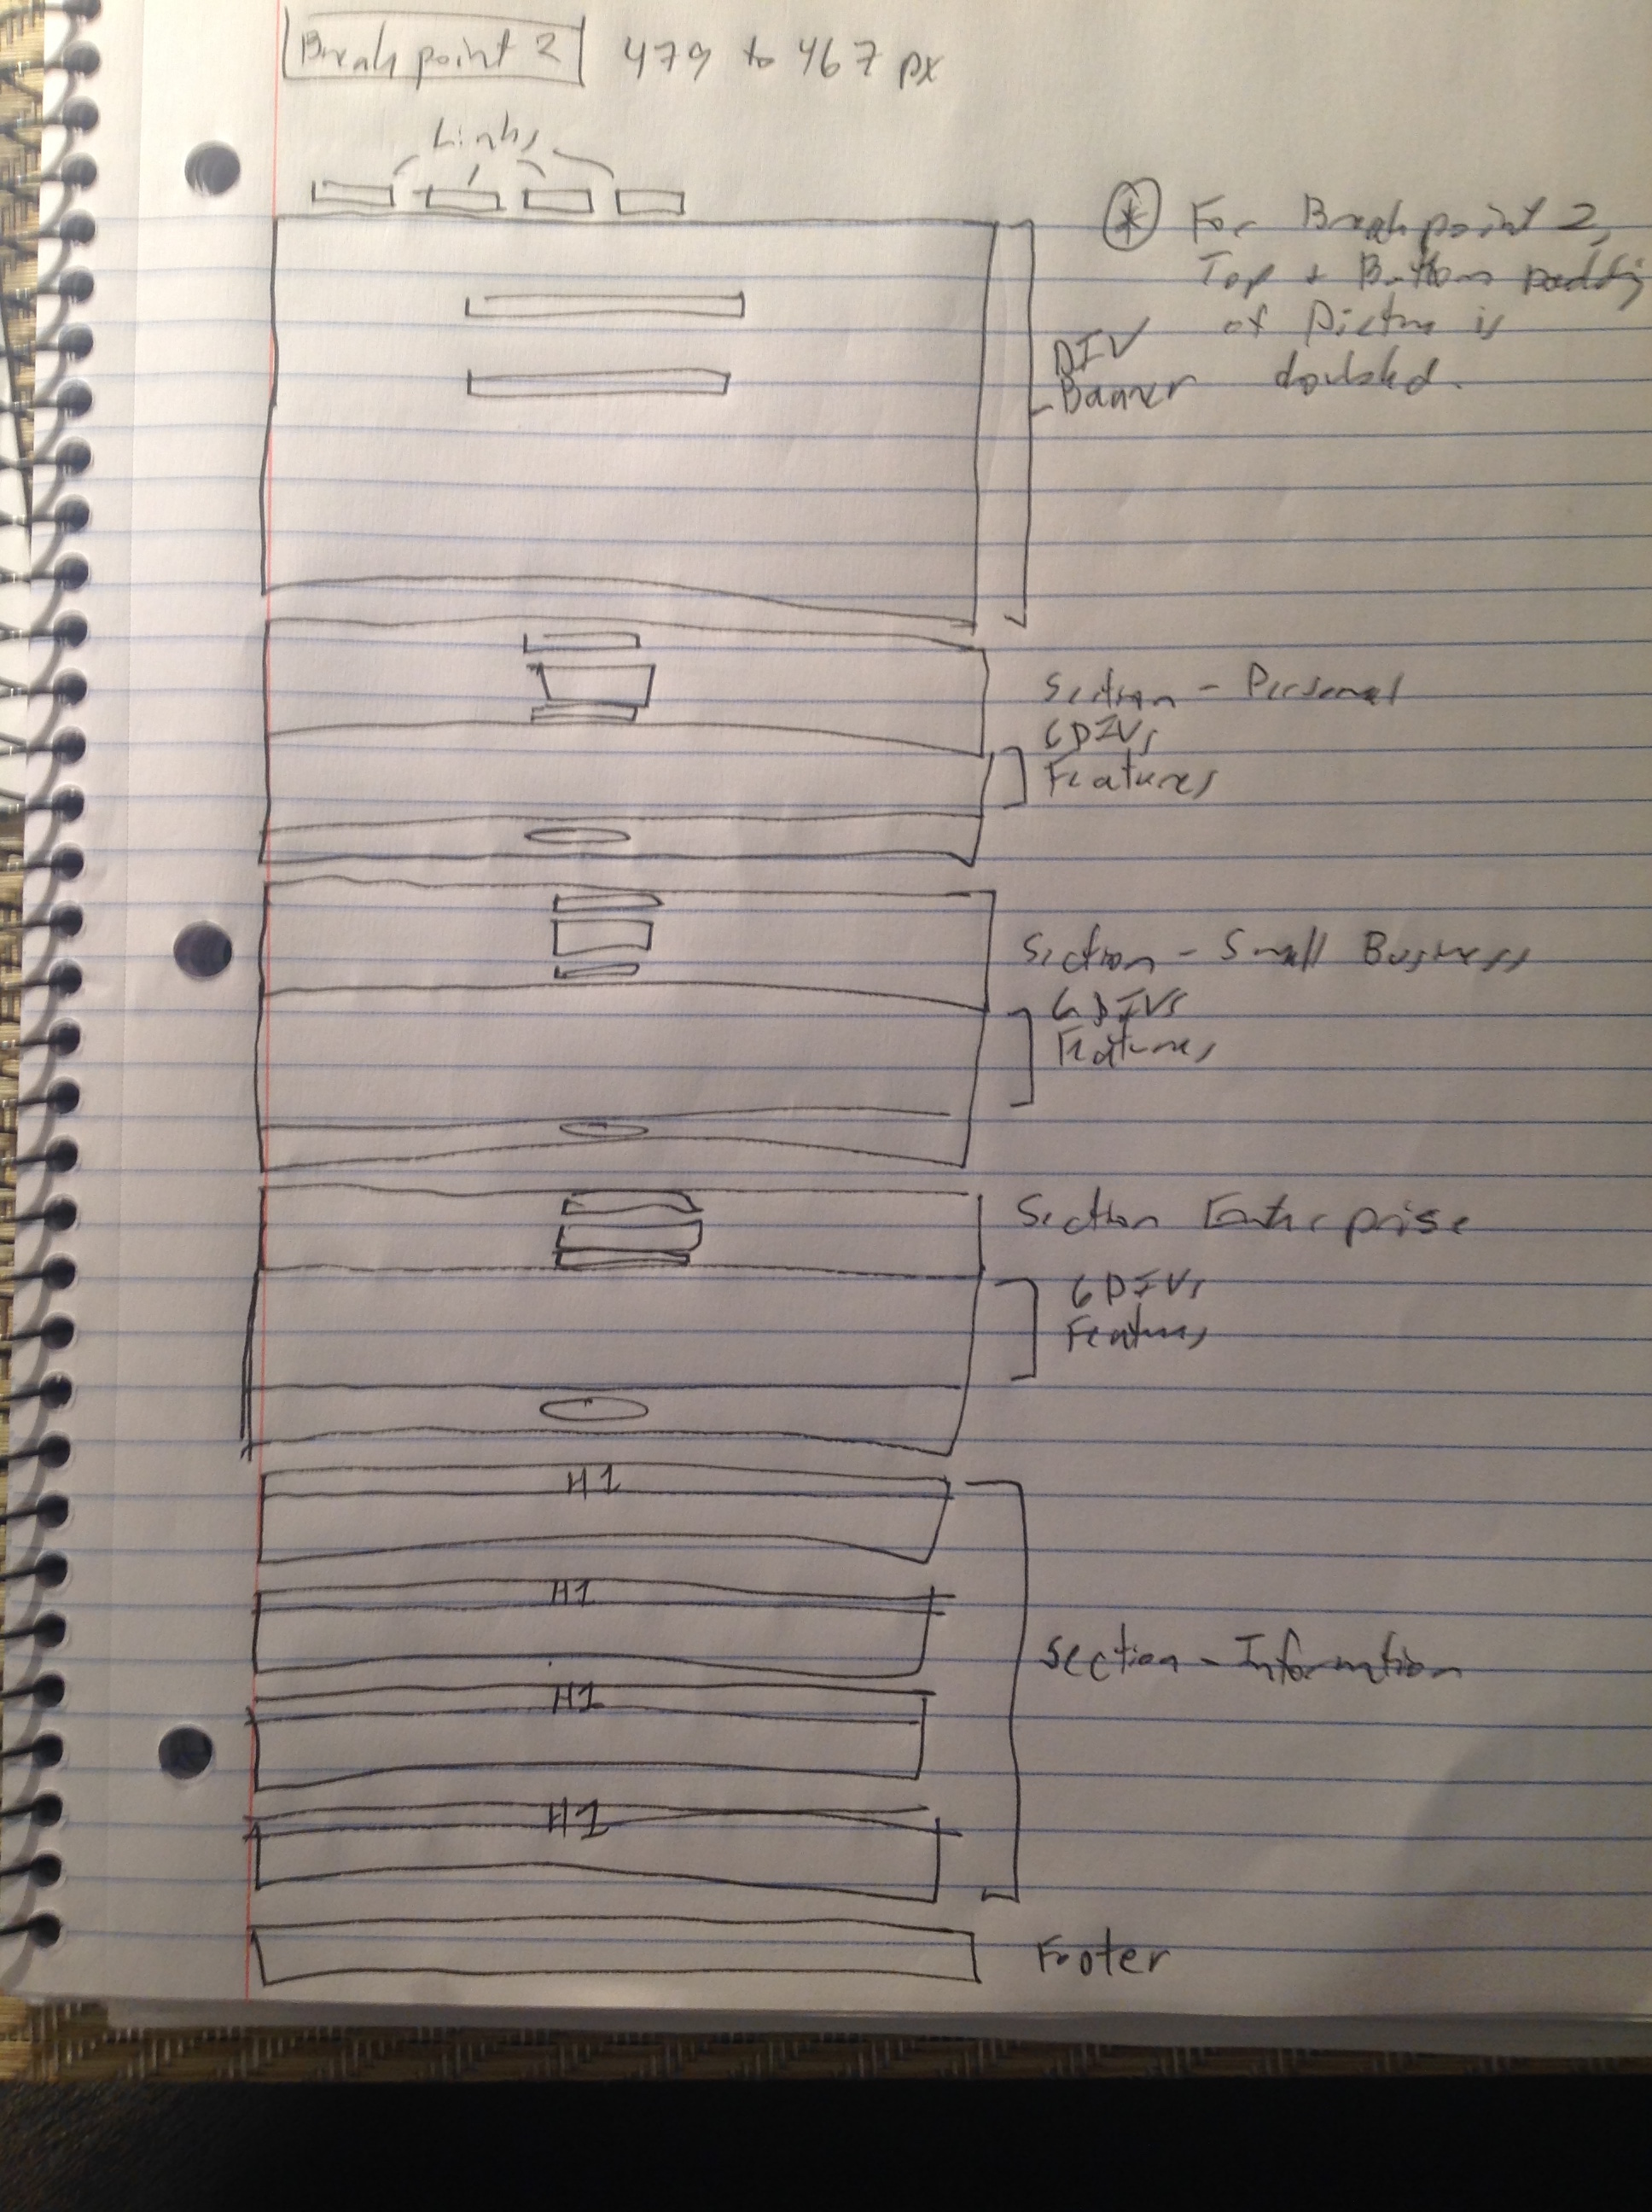 Breakpoint 2 479 to 467 px
Links
* For Breakpoint 2,
Top + Bottom padding
of Picture is
doubled.
DIV
Banner
Section - Personal
6 DIVs
Features
Section - Small Business
6 DIVs
Features
Section Enterprise
6 DIVs
Features
H1
H1
Section - Information
H1
H1
Footer